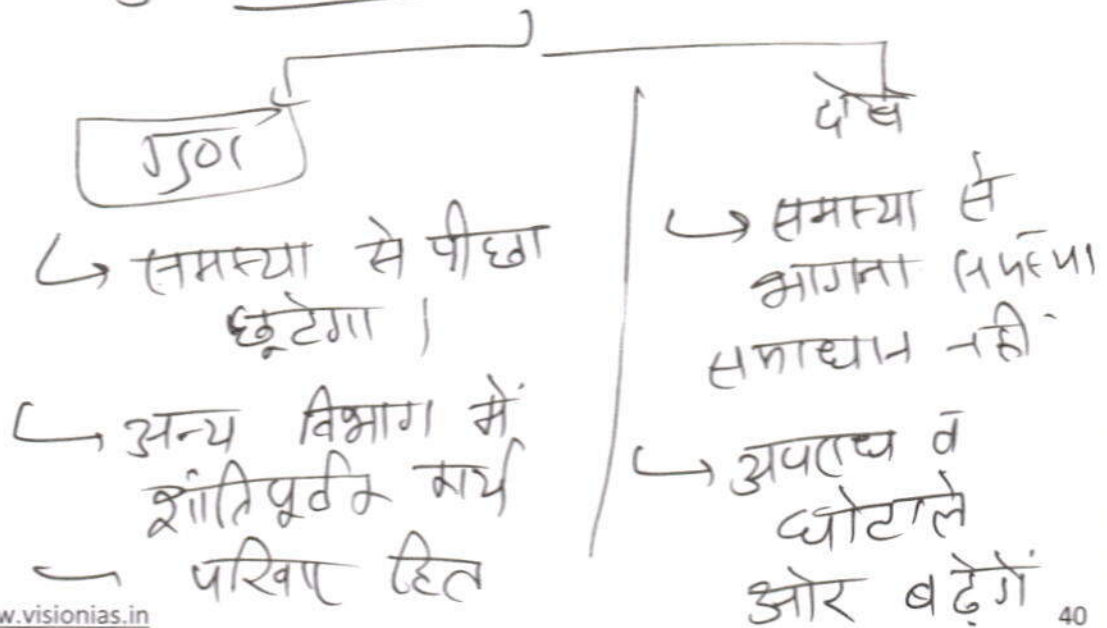 गुण
↳ समस्या से पीछा
छूटेगा।
↳ अन्य विभाग में
शांतिपूर्वक कार्य
- परिवार हित
दोष
↳ समस्या से
भागना समस्या
समाधान नहीं
↳ अपराध व
घोटाले
ओर बढ़ेगें
w.visionias.in
40